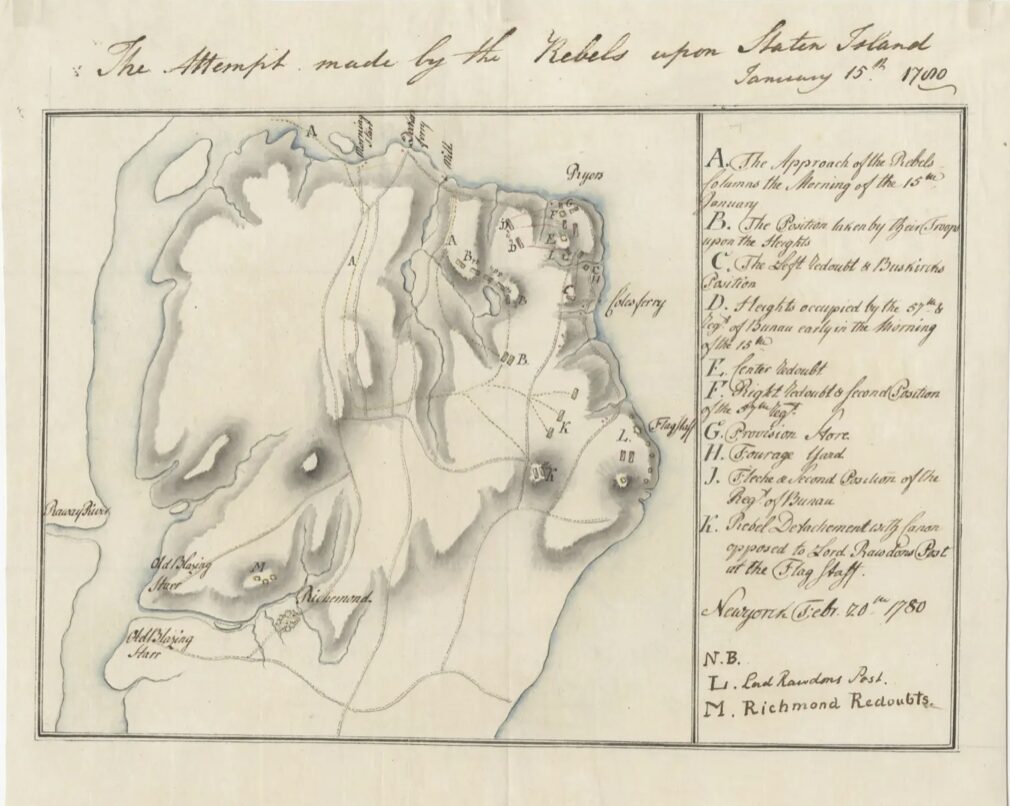 The Attempt made by the Rebels upon Staten Island
January 15.th 1780
A
Morning Starr
Deckers ferry
Mill
Pryors
G
F
E
D
D
A
B
C
H
A
B
J
Coles ferry
B.
K
L.
Flagstaff
K
Raway River
Old Blazing
Starr
M
Richmond.
Old Blazing
Starr
A. The Approach of the Rebels
Columns the Morning of the 15th
January
B. The Position taken by their Troops
upon the Heights
C. The Left redoubt & Buskircks
Position
D. Heights occupied by the 57th &
Regt. of Bunau early in the Morning
of the 15th
E. Center redoubt
F. Right redoubt & second Position
of the 57th Regt.
G. Provision Store.
H. Fourage Yard
J. Fleche & Second Position of the
Regt. of Bunau
K. Rebel Detachement with Canon
opposed to Lord Rawdons Post
at the Flag Staff.
Newyorck Febr. 20th 1780
N.B.
L. Lord Rawdons Post.
M. Richmond Redoubts.